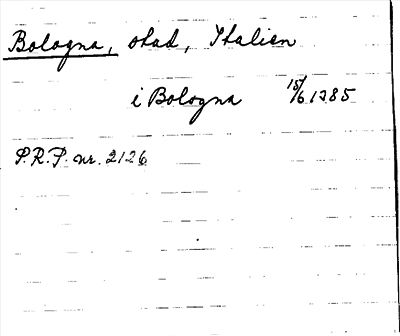 Bologna, stad, Italien
i Bologna 15/6 1385
P.R.P. nr. 2126